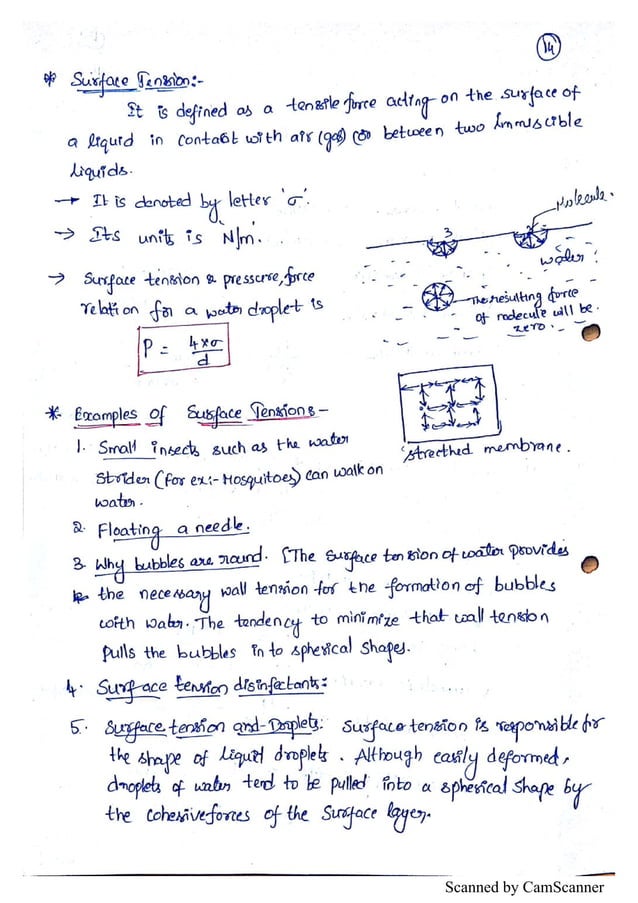 14
* Surface Tension:-
It is defined as a tensile force acting on the surface of
a liquid in contact with air (gas) (or) between two Immiscible
liquids.
→ It is denoted by letter 'σ'.
→ Its units is N/m.
→ Surface tension & pressure, force
relation for a water droplet is
P = 4×σ/d
Molecule.
3
water
The resulting force
of molecule will be.
zero.
* Examples of Surface Tension:-
1. Small insects such as the water
Strider (for ex:- Mosquitoes) can walk on
water.
stretched membrane.
2. Floating a needle.
3. Why bubbles are round. [The surface tension of water provides
the necessary wall tension for the formation of bubbles
with water. The tendency to minimize that wall tension
pulls the bubbles in to spherical shapes.
4. Surface tension disinfectants:
5. Surface tension and Droplets: Surface tension is responsible for
the shape of liquid droplets. Although easily deformed,
droplets of water tend to be pulled into a spherical shape by
the cohesive forces of the surface layer.
Scanned by CamScanner